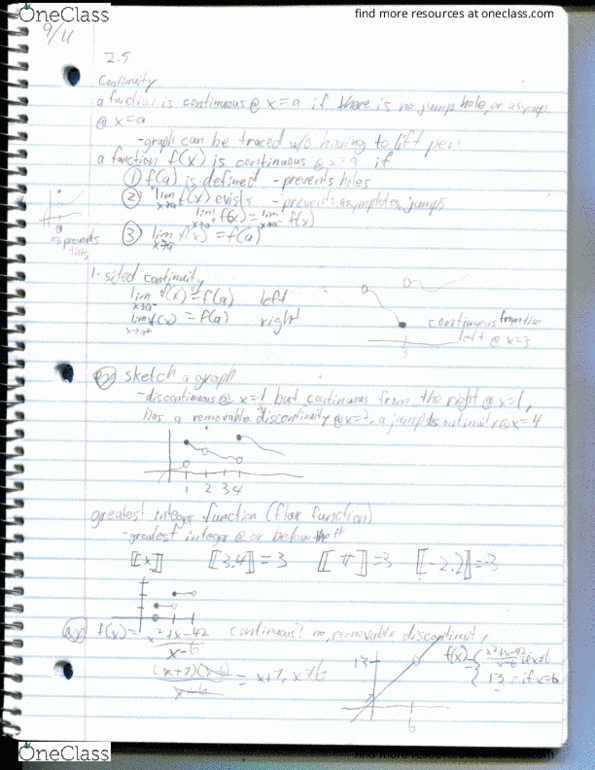 OneClass
find more resources at oneclass.com
9/11
2.5
Continuity
a function is continuous @ x=a if there is no jump, hole, or asymp.
@ x=a
-graph can be traced w/o having to lift pen
a function f(x) is continuous @ x=a if
① f(a) is defined - prevents holes
② lim x→a f(x) exists - prevents asymptotes, jumps
lim x→a⁻ f(x) = lim x→a⁺ f(x)
③ lim x→a f(x) = f(a)
prevents
this
1-sided continuity
lim x→a⁻ f(x) = f(a) left
lim x→a⁺ f(x) = f(a) right
continuous from the
left @ x=3
3
ex sketch a graph
-discontinuous @ x=1 but continuous from the right @ x=1,
has a removable discontinuity @ x=2, a jump discontinuity @ x=4
1 2 3 4
greatest integer function (floor function)
-greatest integer @ or below the #
[[x]] [[3.4]] = 3 [[π]] = 3 [[-2.2]] = -3
f(x) = x²+x-42 / x-6 continuous? no, removable discontinuity
(x+7)(x-6) / x-6 = x+7, x≠6
f(x) = { x²+x-42 / x-6 if x≠6
13 - if x=6
13
6
OneClass
find more resources at oneclass.com